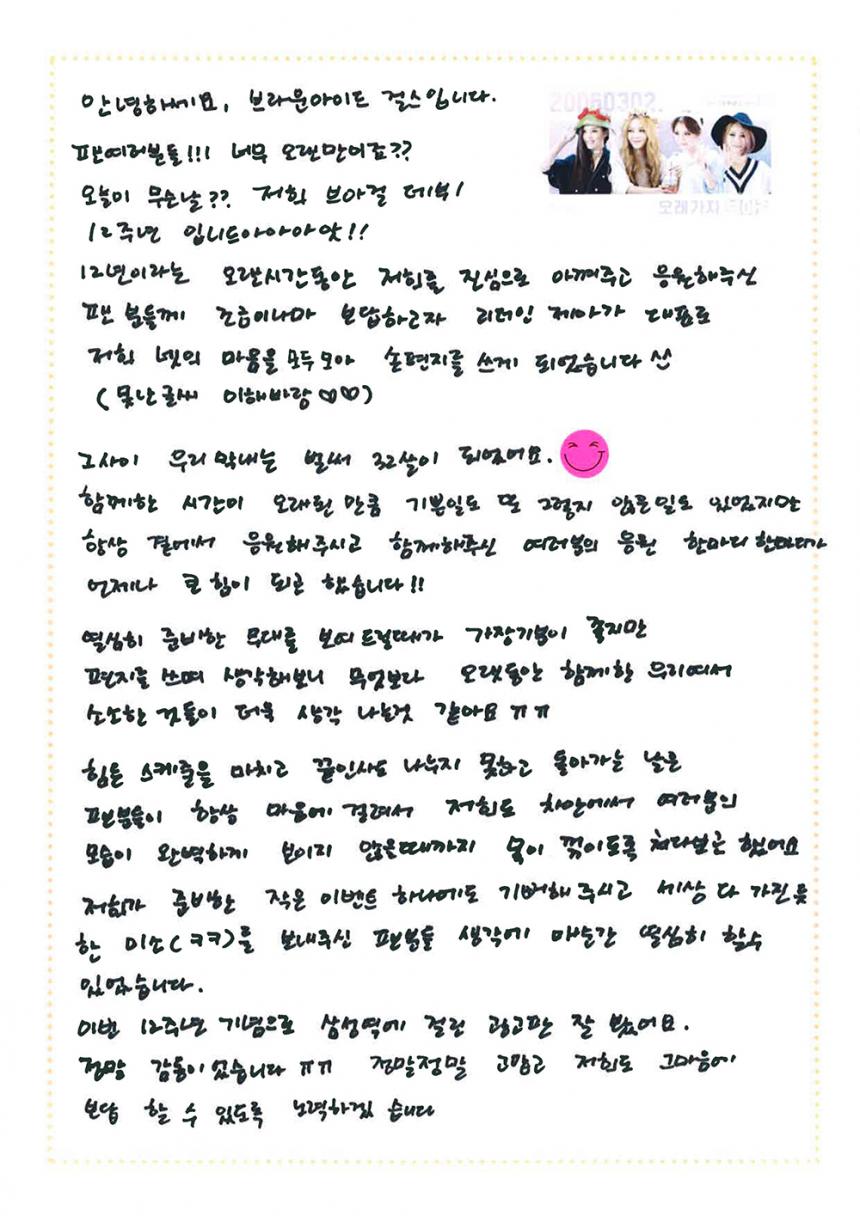 안녕하세요, 브라운아이드 걸스입니다.
20060302.
팬여러분들!!! 너무 오랜만이죠??
오늘이 무슨날?? 저희 브아걸 데뷔!
오래가자
12주년 입니드아아아아앗!!
12년이라는 오랜시간동안 저희를 진심으로 아껴주고 응원해주신
팬 분들께 조금이나마 보답하고자 리더인 제아가 대표로
저희 넷의 마음을 모두모아 손편지를 쓰게 되었습니다 ^^
(못난글씨 이해바랑♡♡)
그사이 우리막내는 벌써 32살이 되었어요.
함께한 시간이 오래된 만큼 기쁜일도 또 그렇지 않은일도 있었지만
항상 곁에서 응원해주시고 함께해주신 여러분의 응원 한마디 한마디가
언제나 큰힘이 되곤 했습니다!!
열심히 준비한 무대를 보여드릴때가 가장기쁨이 좋지만
편지를 쓰며 생각해보니 무엇보다 오랫동안 함께한 우리여서
소소한것들이 더욱 생각 나는것 같아요 ㅠㅠ
힘든 스케줄을 마치고 끝인사도 나누지 못하고 돌아가는 날은
팬분들이 항상 마음에 걸려서 저희도 차안에서 여러분의
모습이 완벽하게 보이지 않을때까지 목이 꺾이도록 쳐다보곤 했어요
저희가 준비한 작은 이벤트 하나에도 기뻐해주시고 세상 다 가진듯
한 미소(ㅋㅋ)를 보내주신 팬분들 생각에 매순간 열심히 할수
있었습니다.
이번 12주년 기념으로 삼성역에 걸린 광고판 잘 봤어요.
정말 감동이었습니다 ㅠㅠ 정말정말 고맙고 저희도 그마음에
보답 할 수 있도록 노력하겠 습니다